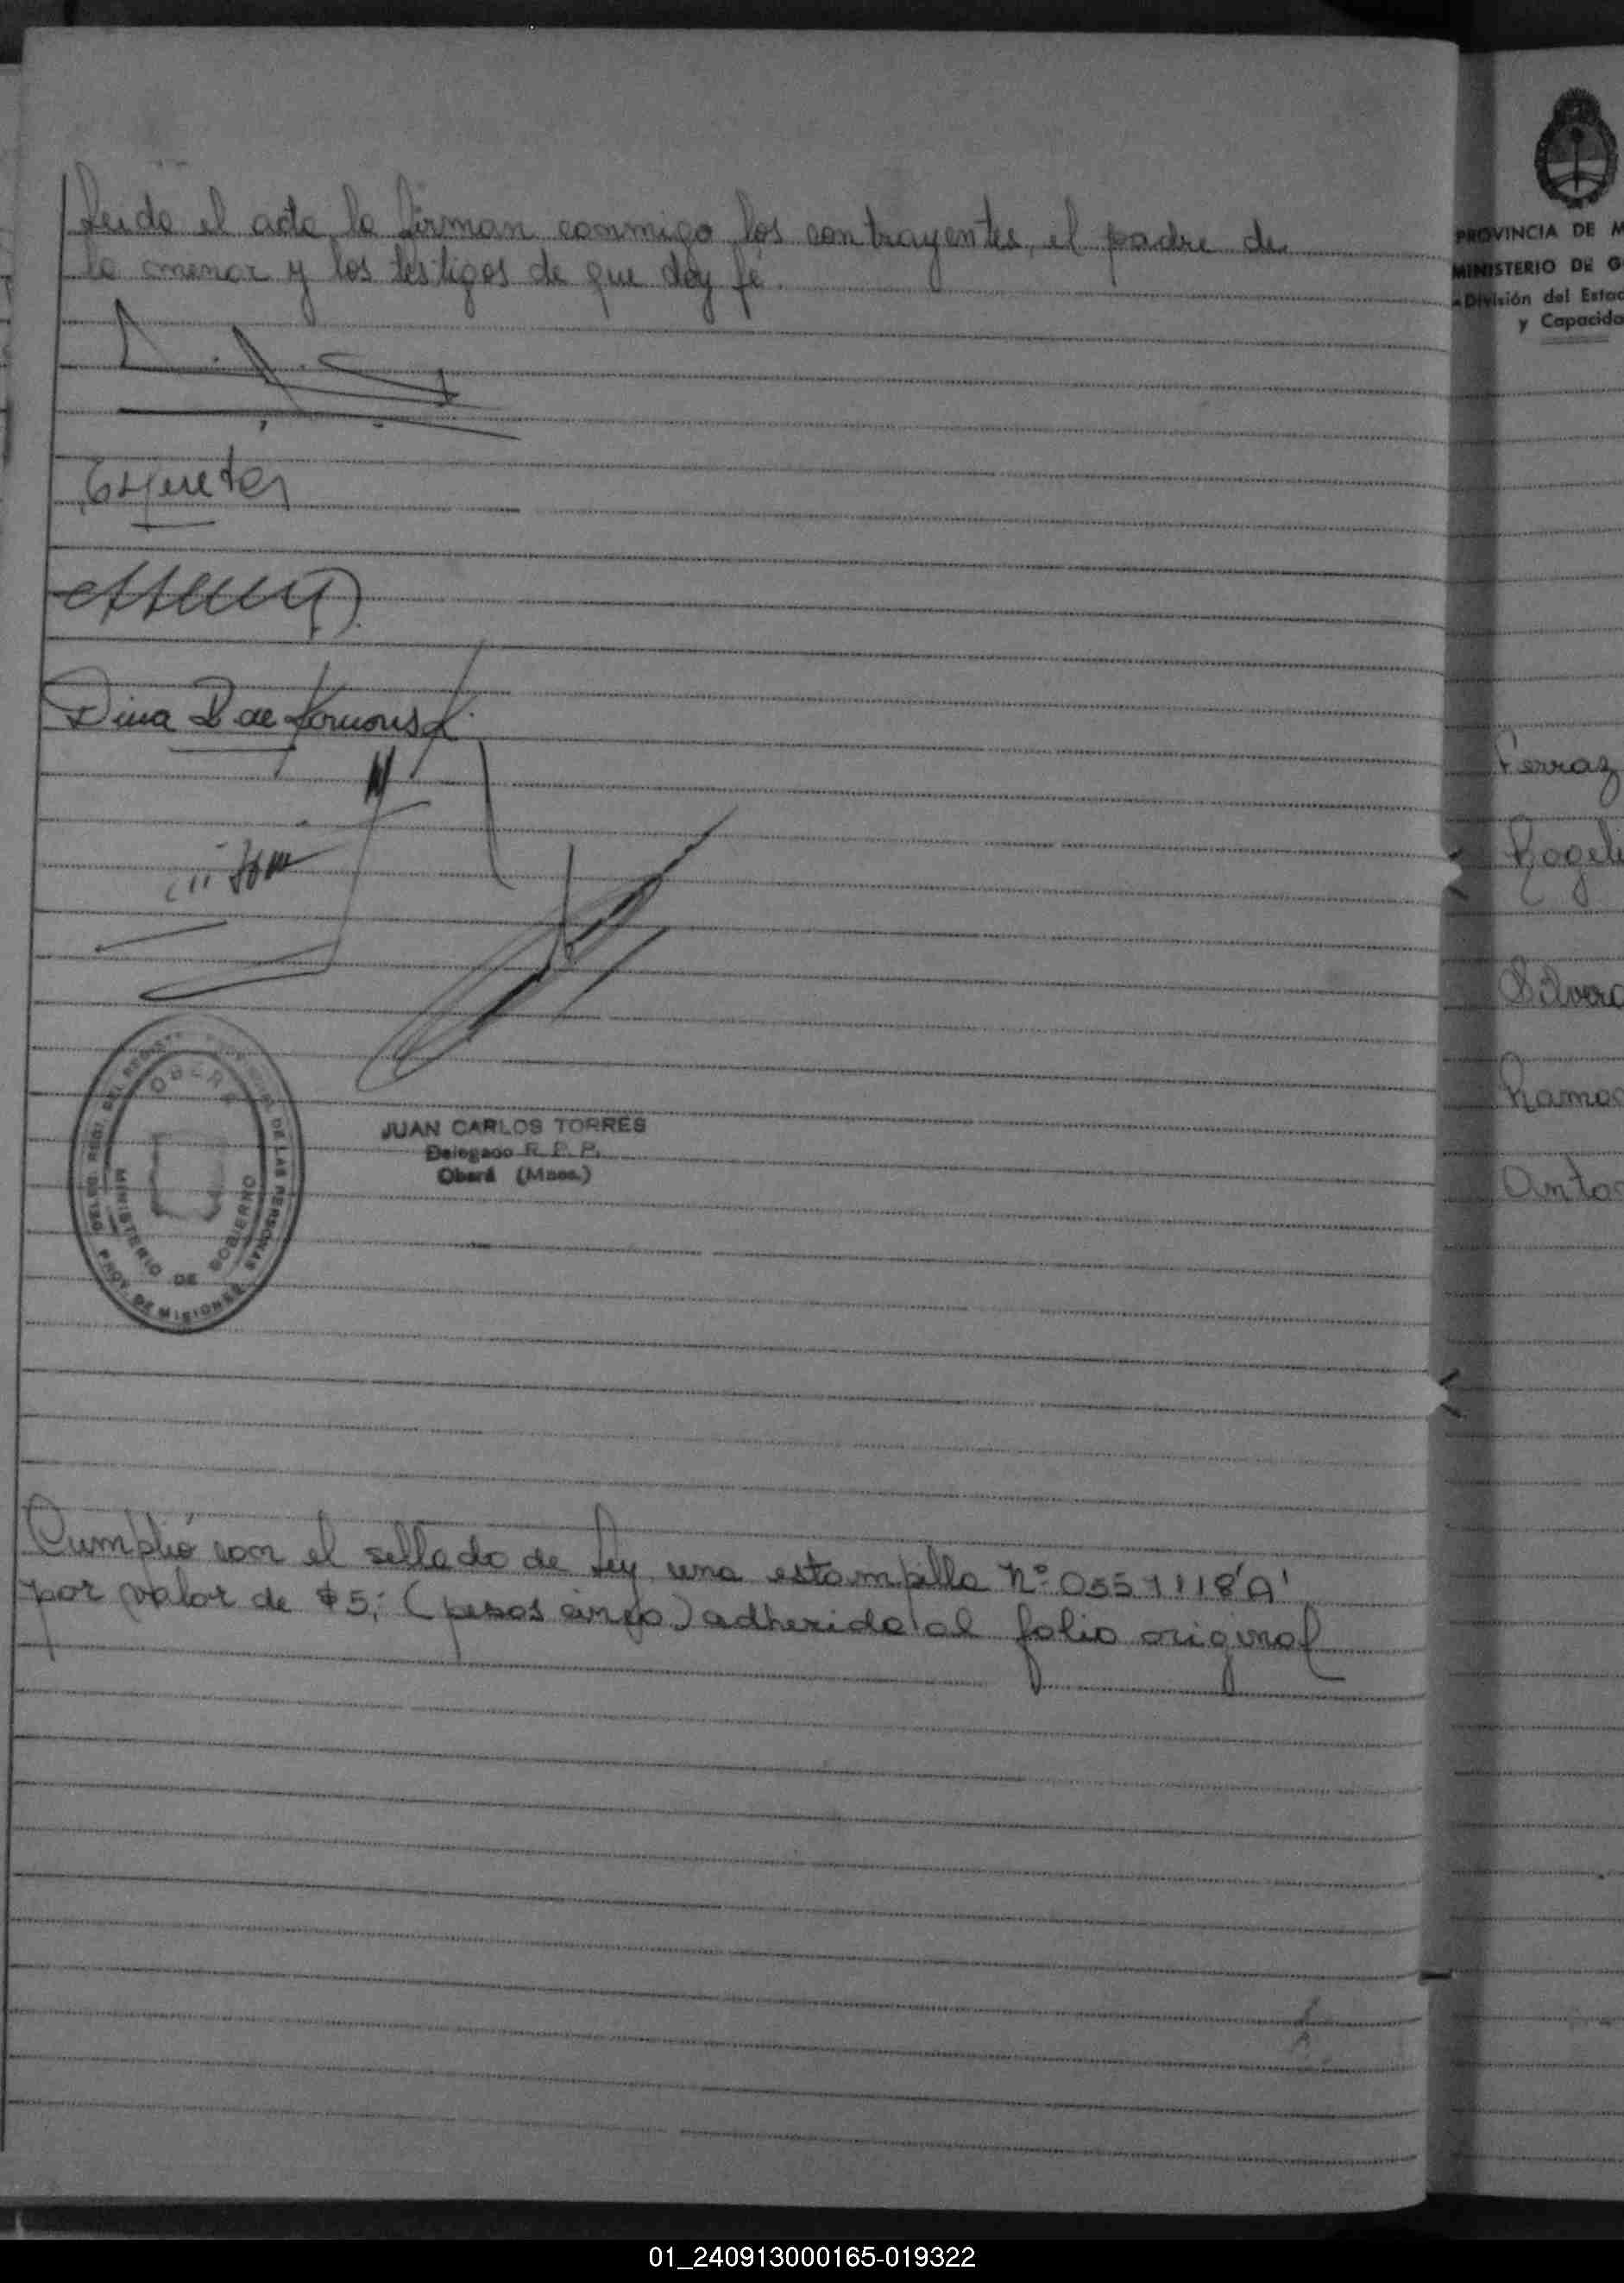 Leido el acta la firman conmigo los contrayentes, el padre de
la menor y los testigos de que doy fé.
Dina B de
JUAN CARLOS TORRES
Delegado R. P. P.
Oberá (Mnes.)
OBERA
DE LAS PERSONAS
MINISTERIO DE GOBIERNO
PROV. DE MISIONES
Cumplió con el sellado de Ley una estampilla Nº 0557118 'A'
por valor de $5,- (pesos cinco) adherida al folio original
PROVINCIA DE M
MINISTERIO DE G
División del Estad
y Capacida
Ferraz
Rogeli
Silvera
Ramo
Anto
01_240913000165-019322